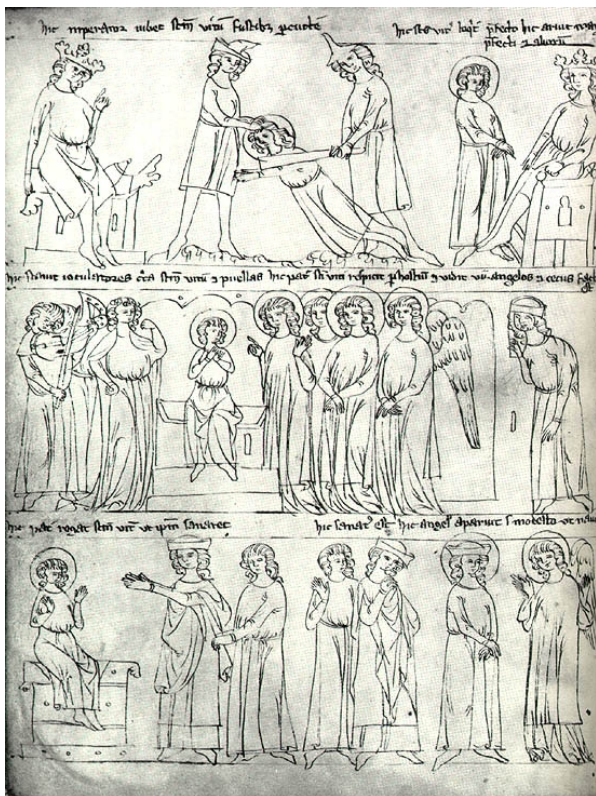 hic imperator iubet scm vitu fustibz pcute
hic scs vit' loqt pfecto hic aruit man
pfecti
hic statuit ioculatores cca scm vitu 2 puellas hic pat sti viti respicit p hostiu 2 vidit vii angelos 2 cecus
hic pat rogat scm vit ut ipm sanaret
hic sanat' est hic angel' aparuit s modesto ut